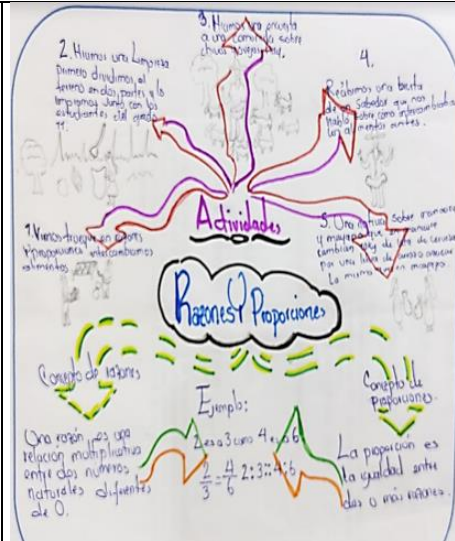 3. Hicimos una
a una comunidad sobre
2. Hicimos una Limpieza
primero dividimos el
terreno en dos partes y lo
limpiamos Junto con los
estudiantes del grado
11.
4.
Recibimos una
de un Sabedor que nos
habló sobre como intercambiaban
los alimentos antes.
Actividades
1. Vimos trueque en
proporciones intercambiamos
alimentos
5. Una sobre
y
cambian de
por una libra de
Lo mismo que en mayapo
Razones Y Proporciones
Concepto de razones
Ejemplo:
Concepto de
proporciones.
Una razón es una
relación multiplicativa
entre dos números
naturales diferentes
de 0.
2 es a 3 como 4 es a 6
2/3 = 4/6 2:3::4:6
La proporción es
la igualdad entre
dos o más razones.